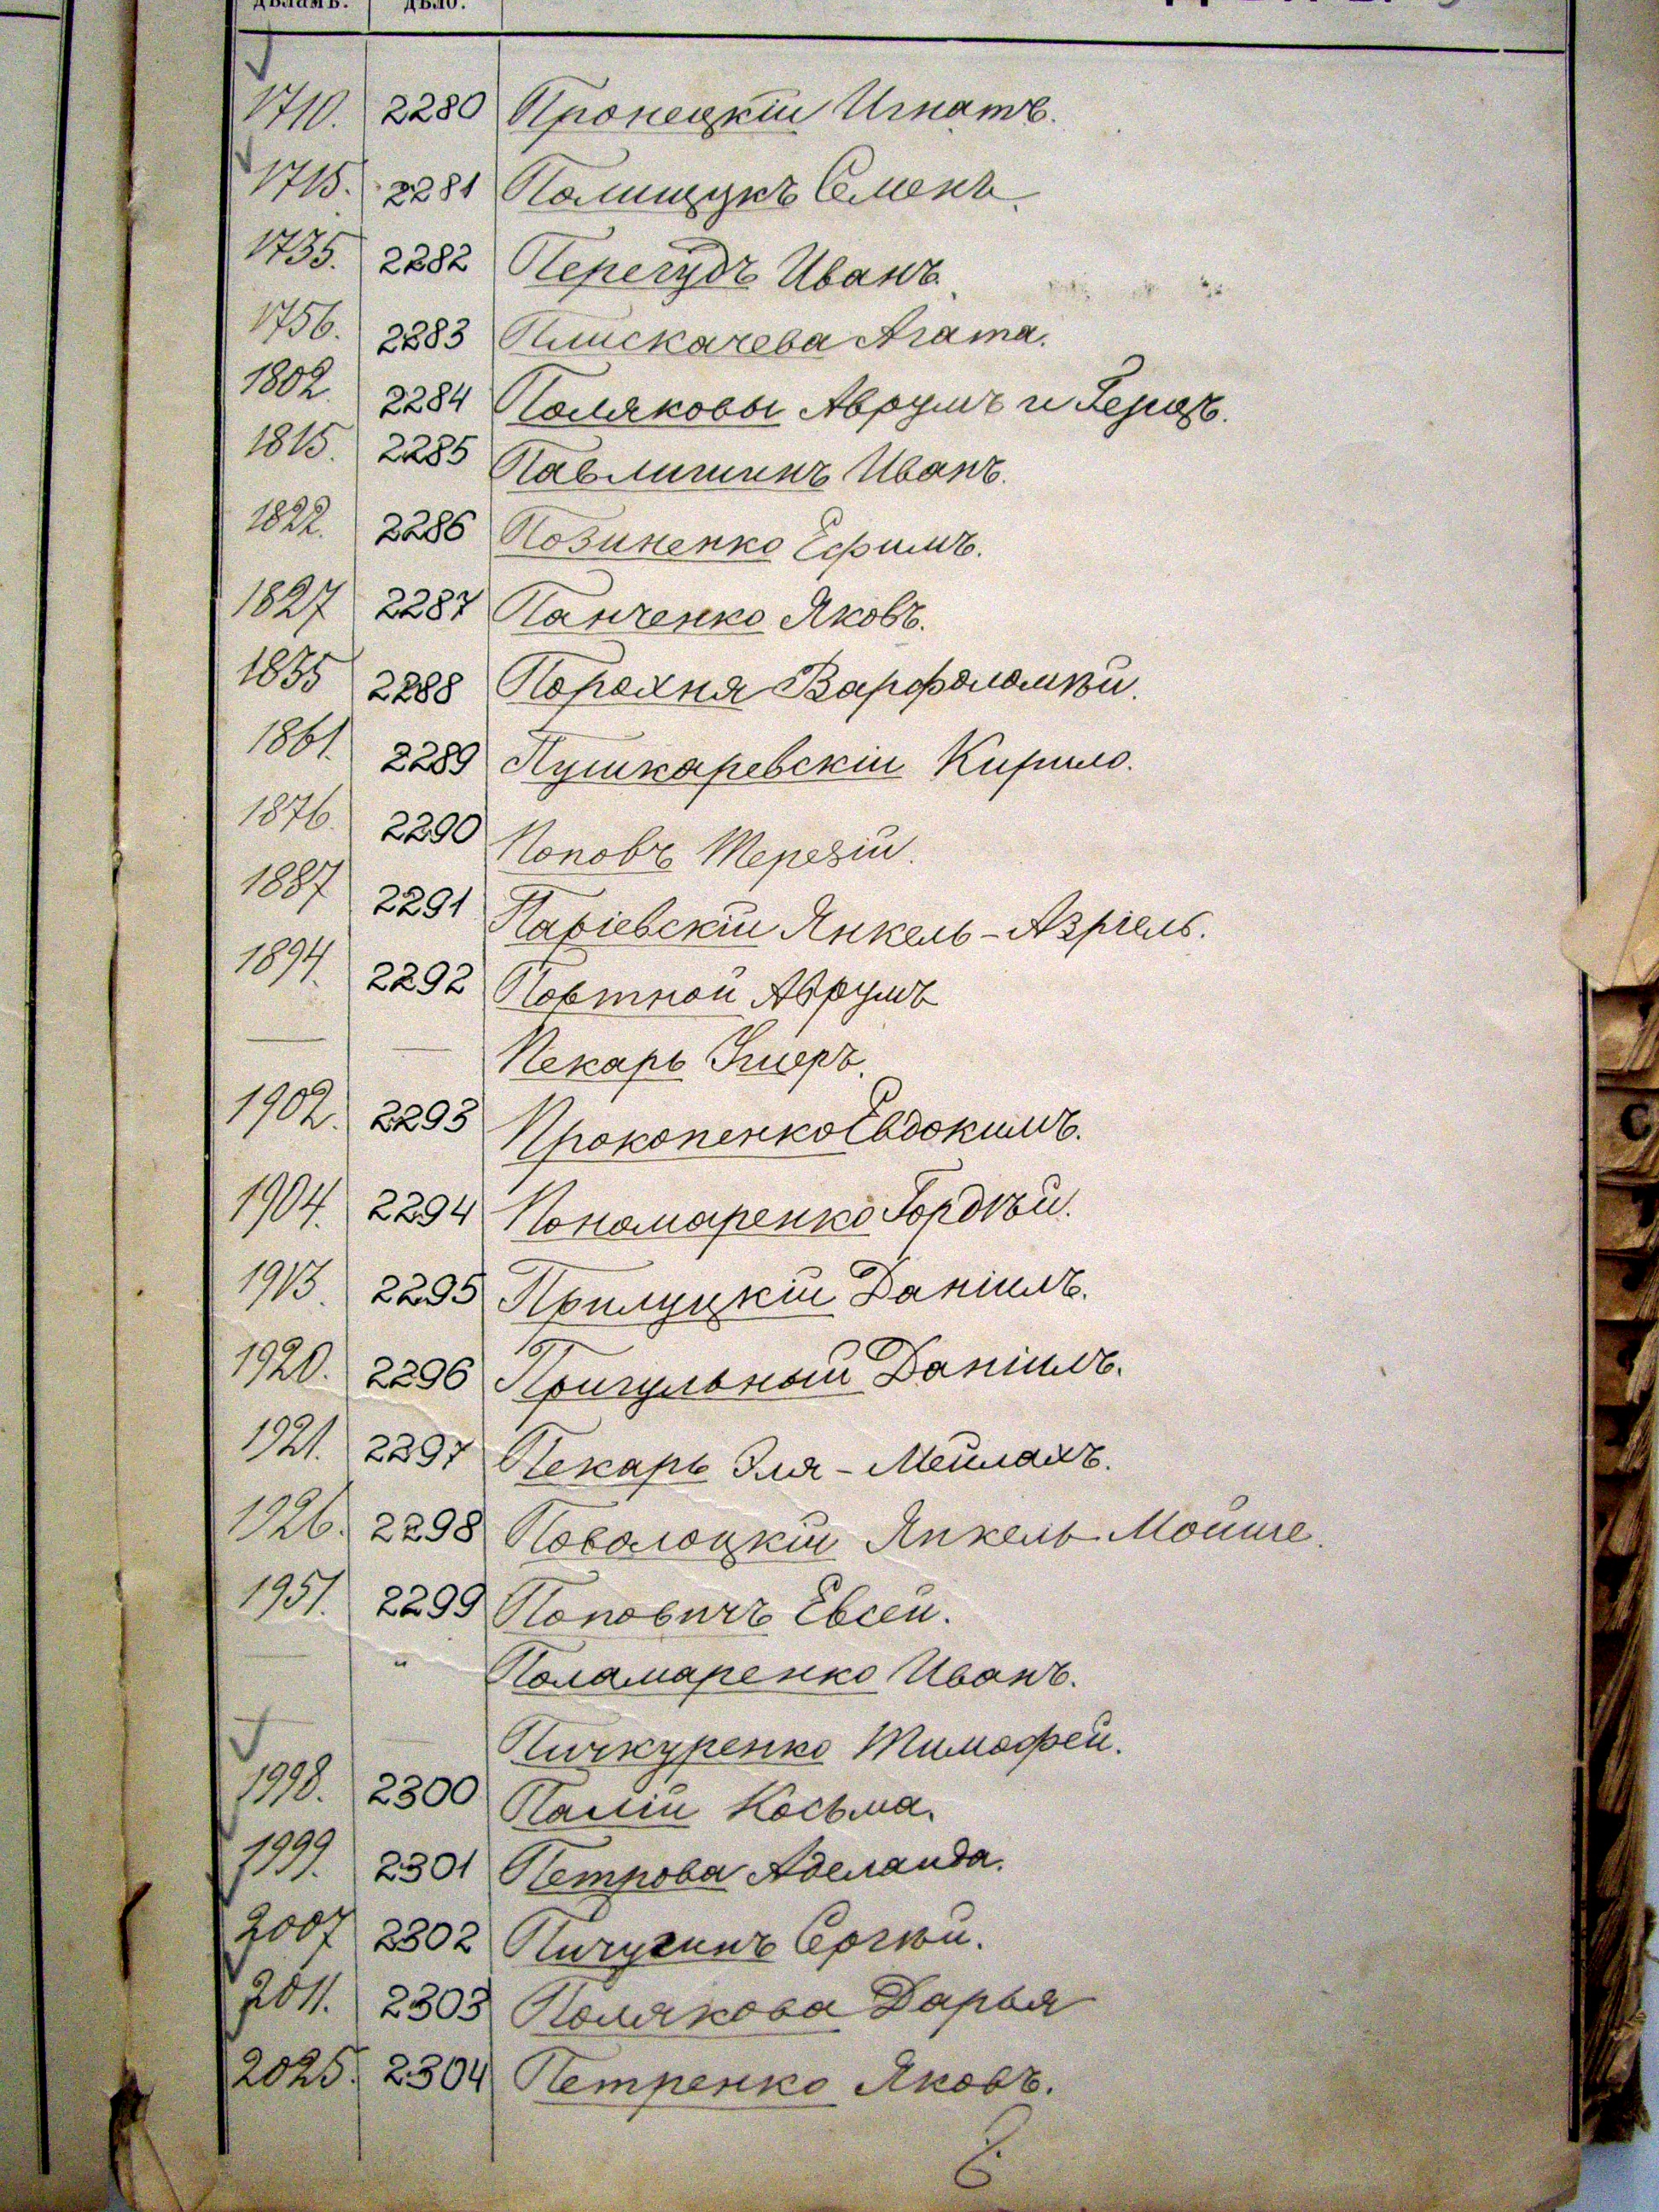 дѣламъ. дѣло.
1710. 2280 Пронецкій Игнатъ.
1715. 2281 Полищукъ Семенъ.
1735. 2282 Перегудъ Иванъ.
1756. 2283 Плискачева Агата.
1802. 2284 Поляковы Аврумъ и Герцъ.
1815. 2285 Павлишинъ Иванъ.
1822. 2286 Позиненко Ефимъ.
1827 2287 Панченко Яковъ.
1835 2288 Порохня Варфоломѣй.
1861. 2289 Пушкаревскій Кирило.
1876. 2290 Поповъ Терезій.
1887 2291 Паріевскій Янкель-Азріель.
1894. 2292 Портной Аврумъ
— — Пекарь Ушеръ.
1902. 2293 Прокопенко Евдокимъ.
1904. 2294 Пономаренко Гордѣй.
1913. 2295 Прилуцкій Даніилъ.
1920. 2296 Пригульный Даніилъ.
1921. 2297 Пекарь Эля-Мейлахъ.
1926. 2298 Поволоцкій Янкель Мойше.
1951. 2299 Поповичъ Евсей.
— " Поламаренко Иванъ.
— — Пичкуренко Тимофей.
1998. 2300 Палій Косьма.
1999. 2301 Петрова Аделаида.
2007 2302 Пичугинъ Сергѣй.
2011. 2303 Полякова Дарья
2025. 2304 Петренко Яковъ.
С